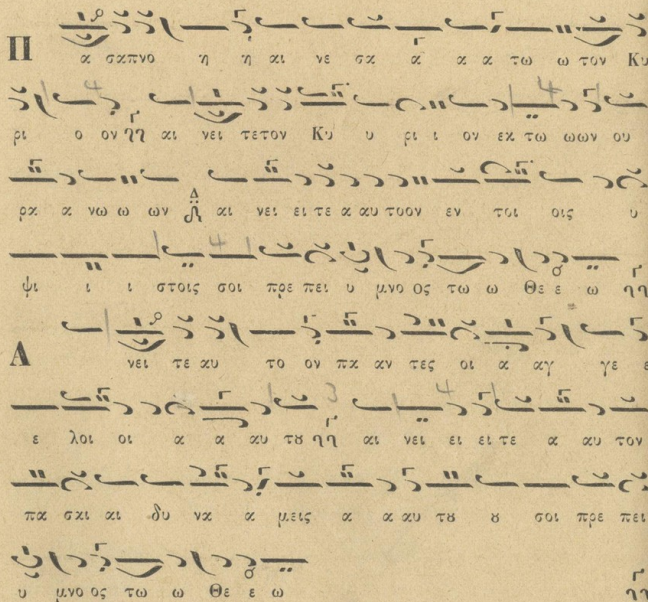 Π α σαπνο η η αι νε σα α α α τω ω τον Κυ
ρι ο ον αι νει τετον Κυ υ ρι ι ον εκ τω ωων ου
ρα α νω ω ων αι νει ει τε α αυ τοον εν τοι οις υ
ψι ι ι στοις σοι πρε πει υ μνο ος τω ω Θε ε ω
Α νει τε αυ το ον πα αν τες οι α αγ γε ε
ε λοι οι α α αυ τȣ αι νει ει ει τε α αυ τον
πα σαι αι δυ να α μεις α α αυ τȣ ȣ σοι πρε πει
υ μνο ος τω ω Θε ε ω